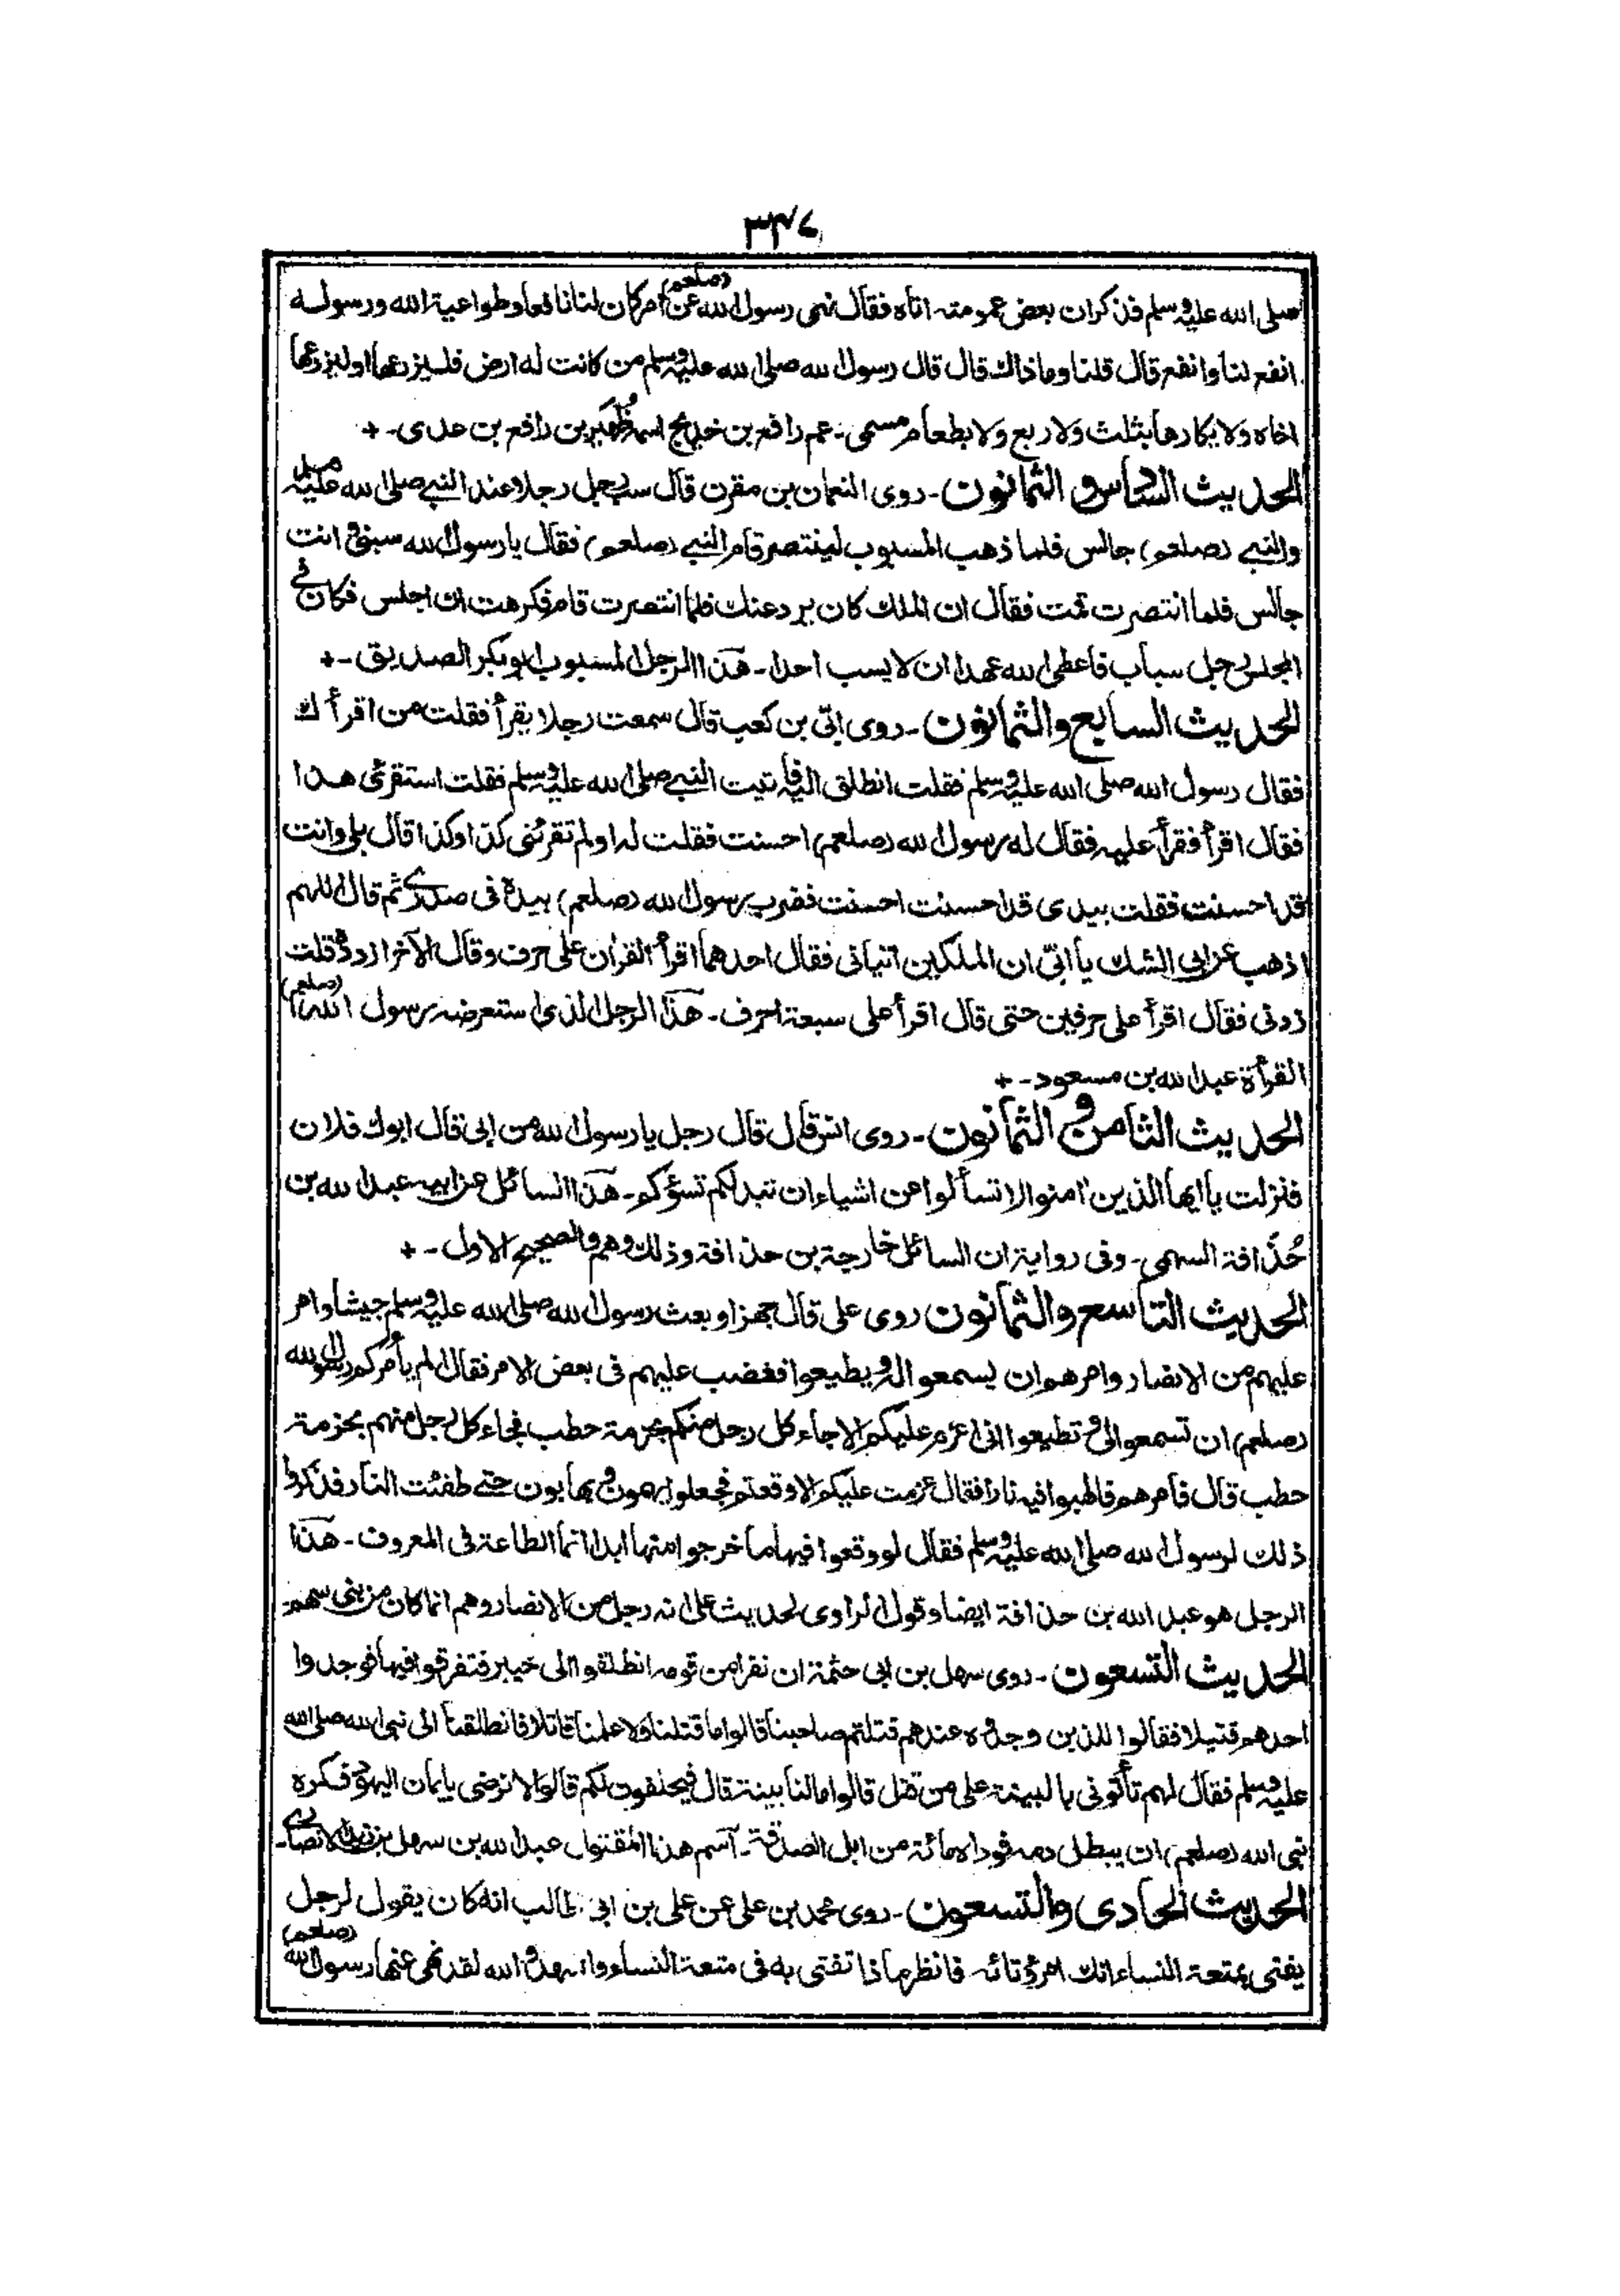 ٣٣٤
صلى الله عليه وسلم فذكر ان بعض عمومته اتاه فقال نهى رسول الله (صلعم) عن امر كان لنا نافعا وطواعية الله ورسوله
انفع لنا وانفع قال قلنا وما ذاك قال قال رسول الله صلى الله عليه وسلم من كانت له ارض فليزرعها او ليزرعها
اخاه ولا يكارها بثلث ولا ربع ولا بطعام مسمى ـ عم رافع بن خديج اسمه ظُهَير بن رافع بن عدى ـ +
الحديث السادس و الثمانون ـ روى النعمان بن مقرن قال سب رجل رجلا عند النبي صلى الله عليه وسلم
والنبي (صلعم) جالس فلما ذهب المسبوب لينتصر قام النبي (صلعم) فقال يا رسول الله سبنى وانت
جالس فلما انتصرت قمت فقال ان الملك كان يرد عنك فلما انتصرت قام فكرهت ان اجلس فكان في
المجلس رجل سباب فاعطى الله عهدا ان لا يسب احدا ـ هذا الرجل المسبوب ابو بكر الصديق ـ +
الحديث السابع والثمانون ـ روى ابىّ بن كعب قال سمعت رجلا يقرأ فقلت من اقرأك
فقال رسول الله صلى الله عليه وسلم فقلت انطلق اليه فأتيت النبي صلى الله عليه وسلم فقلت استقرئ هذا
فقال اقرأ فقرأ عليه فقال له رسول الله (صلعم) احسنت فقلت له اولم تقرئنى كذا وكذا قال بلى وانت
قد احسنت فقلت بيدى قد احسنت احسنت فضرب رسول الله (صلعم) بيده فى صدري ثم قال اللهم
اذهب عن ابى الشك يا ابىّ ان الملكين اتيانى فقال احدهما اقرأ القران على حرف وقال الآخر ازدده قلت
زدنى فقال اقرأ على حرفين حتى قال اقرأ على سبعة احرف ـ هذا الرجل الذى استعرضه رسول الله (صلعم)
القرأة عبد الله بن مسعود ـ +
الحديث الثامن و الثمانون ـ روى انس قال قال رجل يا رسول الله من ابى قال ابوك فلان
فنزلت يا ايها الذين امنوا لا تسألوا عن اشياء ان تبد لكم تسؤكم ـ هذا السائل عن ابيه عبد الله بن
حُذَافة السهمى ـ وفى رواية ان السائل خارجة بن حذافة وذلك وهم والصحيح الاول ـ +
الحديث التاسع والثمانون روى على قال جهز او بعث رسول الله صلى الله عليه وسلم جيشا وامر
عليهم من الانصار وامرهم ان يسمعوا له ويطيعوا فغضب عليهم فى بعض الامر فقال الم يأمركم رسول الله
(صلعم) ان تسمعوا لى وتطيعوا انى اعزم عليكم الا جاء كل رجل منكم بحزمة حطب فجاء كل رجل منهم بحزمة
حطب قال فأمرهم فالهبوا فيه نارا فقال عزمت عليكم الا وقعتم فجعلوا يهمون ويهابون حتى طفئت النار فذكروا
ذلك لرسول الله صلى الله عليه وسلم فقال لو وقعوا فيها ما خرجوا منها ابدا انما الطاعة فى المعروف ـ هذا
الرجل هو عبد الله بن حذافة ايضا وقول الراوى لحديث على انه رجل من الانصار وهم انما كان من بنى سهم ـ
الحديث التسعون ـ روى سهل بن ابى حثمة ان نفرا من قومه انطلقوا الى خيبر فتفرقوا فيها فوجدوا
احدهم قتيلا فقالوا للذين وجدوه عندهم قتلتم صاحبنا قالوا ما قتلنا ولا علمنا قاتلا فانطلقنا الى نبى الله صلى الله
عليه وسلم فقال لهم تأتونى بالبينة على من قتل قالوا ما لنا بينة قال فيحلفون لكم قالوا لا نرضى بايمان اليهود فكره
نبى الله (صلعم) ان يبطل دمه فوداه مائة من ابل الصدقة ـ اسم هذا المقتول عبد الله بن سهل بن زيد الانصاري ـ
الحديث الحادى والتسعون ـ روى محمد بن على عن على بن ابى طالب انه كان يقول لرجل
يفتى بمتعة النساء انك امرؤ تائه فانظر ماذا تفتى به فى متعة النساء والله لقد نهى عنها رسول الله (صلعم)